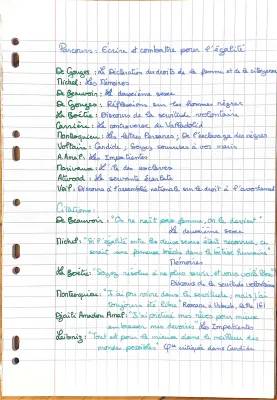 Parcours : Ecrire et combattre pour l'égalité
De Gouges : La Déclaration des droits de la femme et de la citoyenne
Michel : Les Mémoires
De Beauvoir : Le deuxième sexe
De Gouges : Réflexions sur les hommes nègres
La Boétie : Discours de la servitude volontaire
Carrière : La controverse de Valladolid
Montesquieu : Les lettres Persanes ; De l'esclavage des nègres
Voltaire : Candide ;
A. Amal : Les Impatientes
Marivaux : L'île des esclaves
Atwood : La servante écarlate
Veil : Discours à l'assemblée nationale sur le droit à l'avortement
Citations :
De Beauvoir : "On ne naît pas femme, on le devient"
Le deuxième sexe
Michel : "Si l'égalité entre les deux sexes était reconnue, ce
serait une fameuse brèche dans la bêtise humaine"
Mémoires
La Boétie : "Soyez résolus à ne plus servir et vous voilà libres"
Discours de la servitude volontaire
Montesquieu : "J'ai pu vivre dans la servitude, mais j'ai
toujours été libre" Roxane à Usbek, lettre 161
Djaïli Amadou Amal :
Les Impatientes
Leibniz : "Tout est pour le mieux dans le meilleur des
mondes possibles" critiquée dans Candide